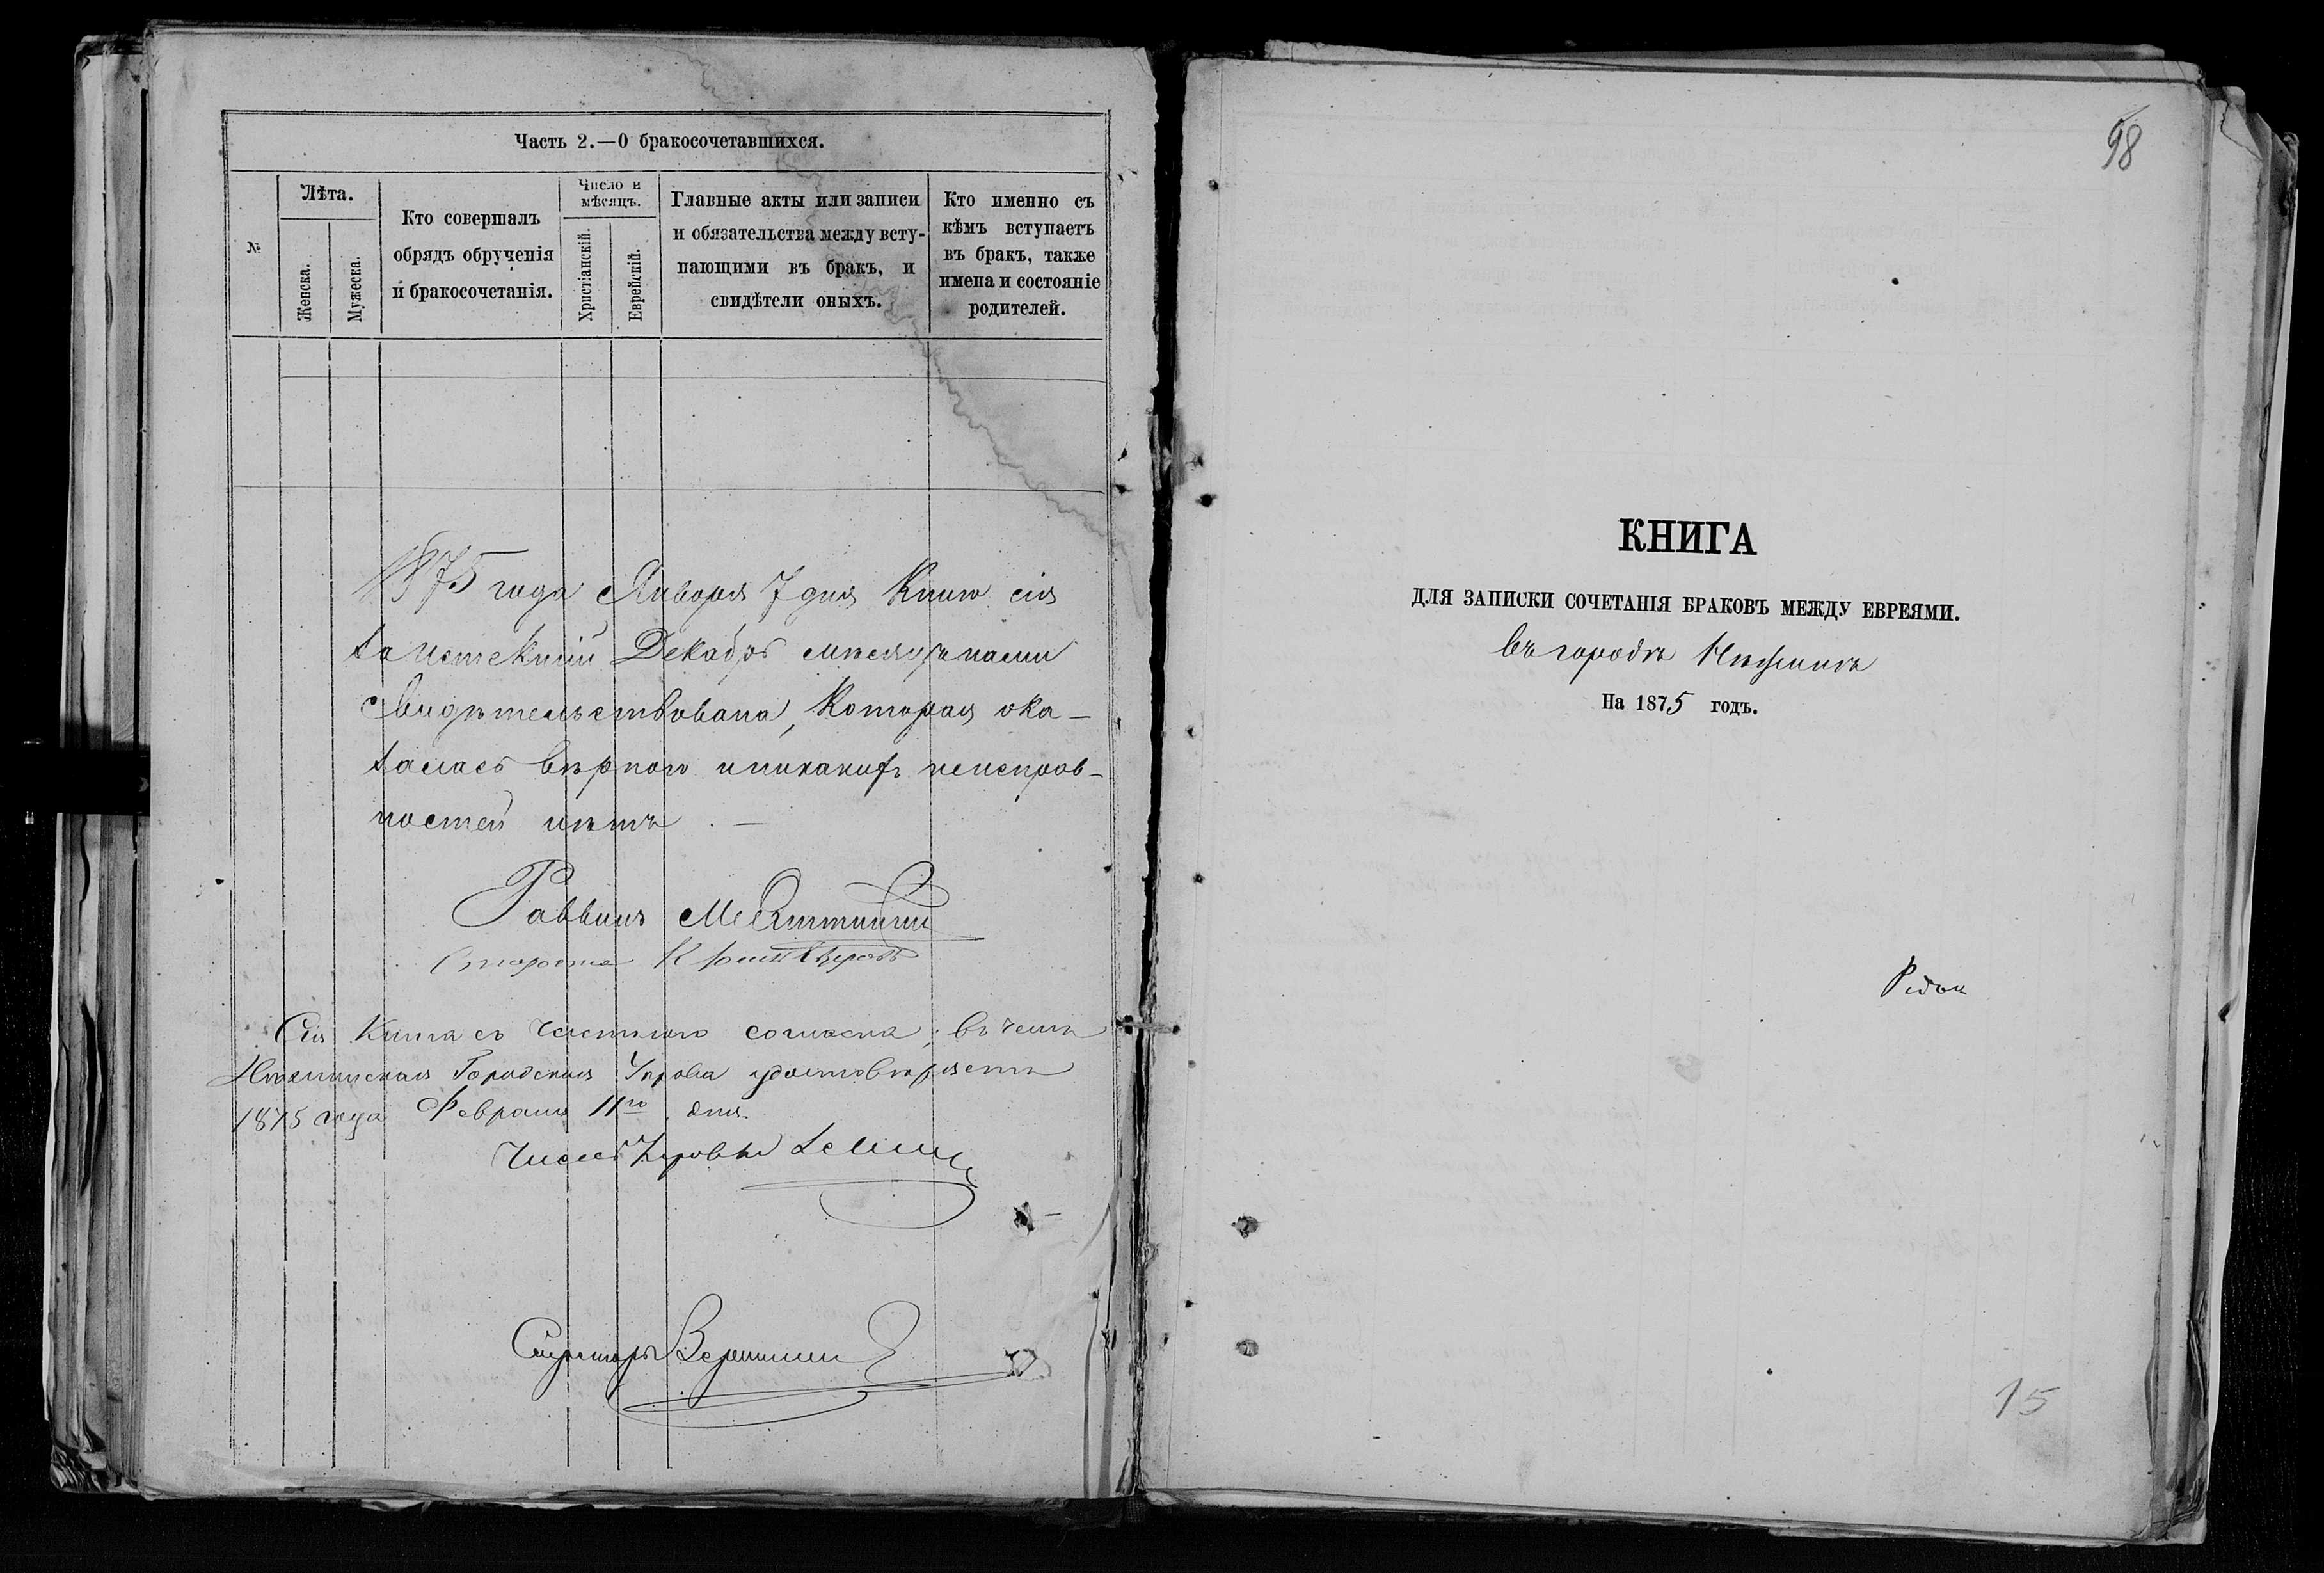 Часть 2.—О бракосочетавшихся.
№
Лѣта.
Женска.
Мужеска.
Кто совершалъ
обрядъ обрученія
и бракосочетанія.
Число и
мѣсяцъ.
Христіанскій.
Еврейскій.
Главные акты или записи
и обязательства между всту-
пающими въ бракъ, и
свидѣтели оныхъ.
Кто именно съ
кѣмъ вступаетъ
въ бракъ, также
имена и состояніе
родителей.
1875 года Января 7 дня Книга сія
за истекшій Декабрь мѣсяцъ нами
свидѣтельствована, которая ока-
залась вѣрною и никакихъ неисправ-
ностей нѣтъ. —
Раввинъ
Староста
Сія Книга съ частною согласна, въ чемъ
Нѣжинская Городская Управа удостовѣряетъ
1875 года Февраля 11го дня.
Членъ Управы
Секретарь
98
КНИГА
ДЛЯ ЗАПИСКИ СОЧЕТАНІЯ БРАКОВЪ МЕЖДУ ЕВРЕЯМИ.
въ городѣ Нѣжинѣ
На 1875 годъ.
15